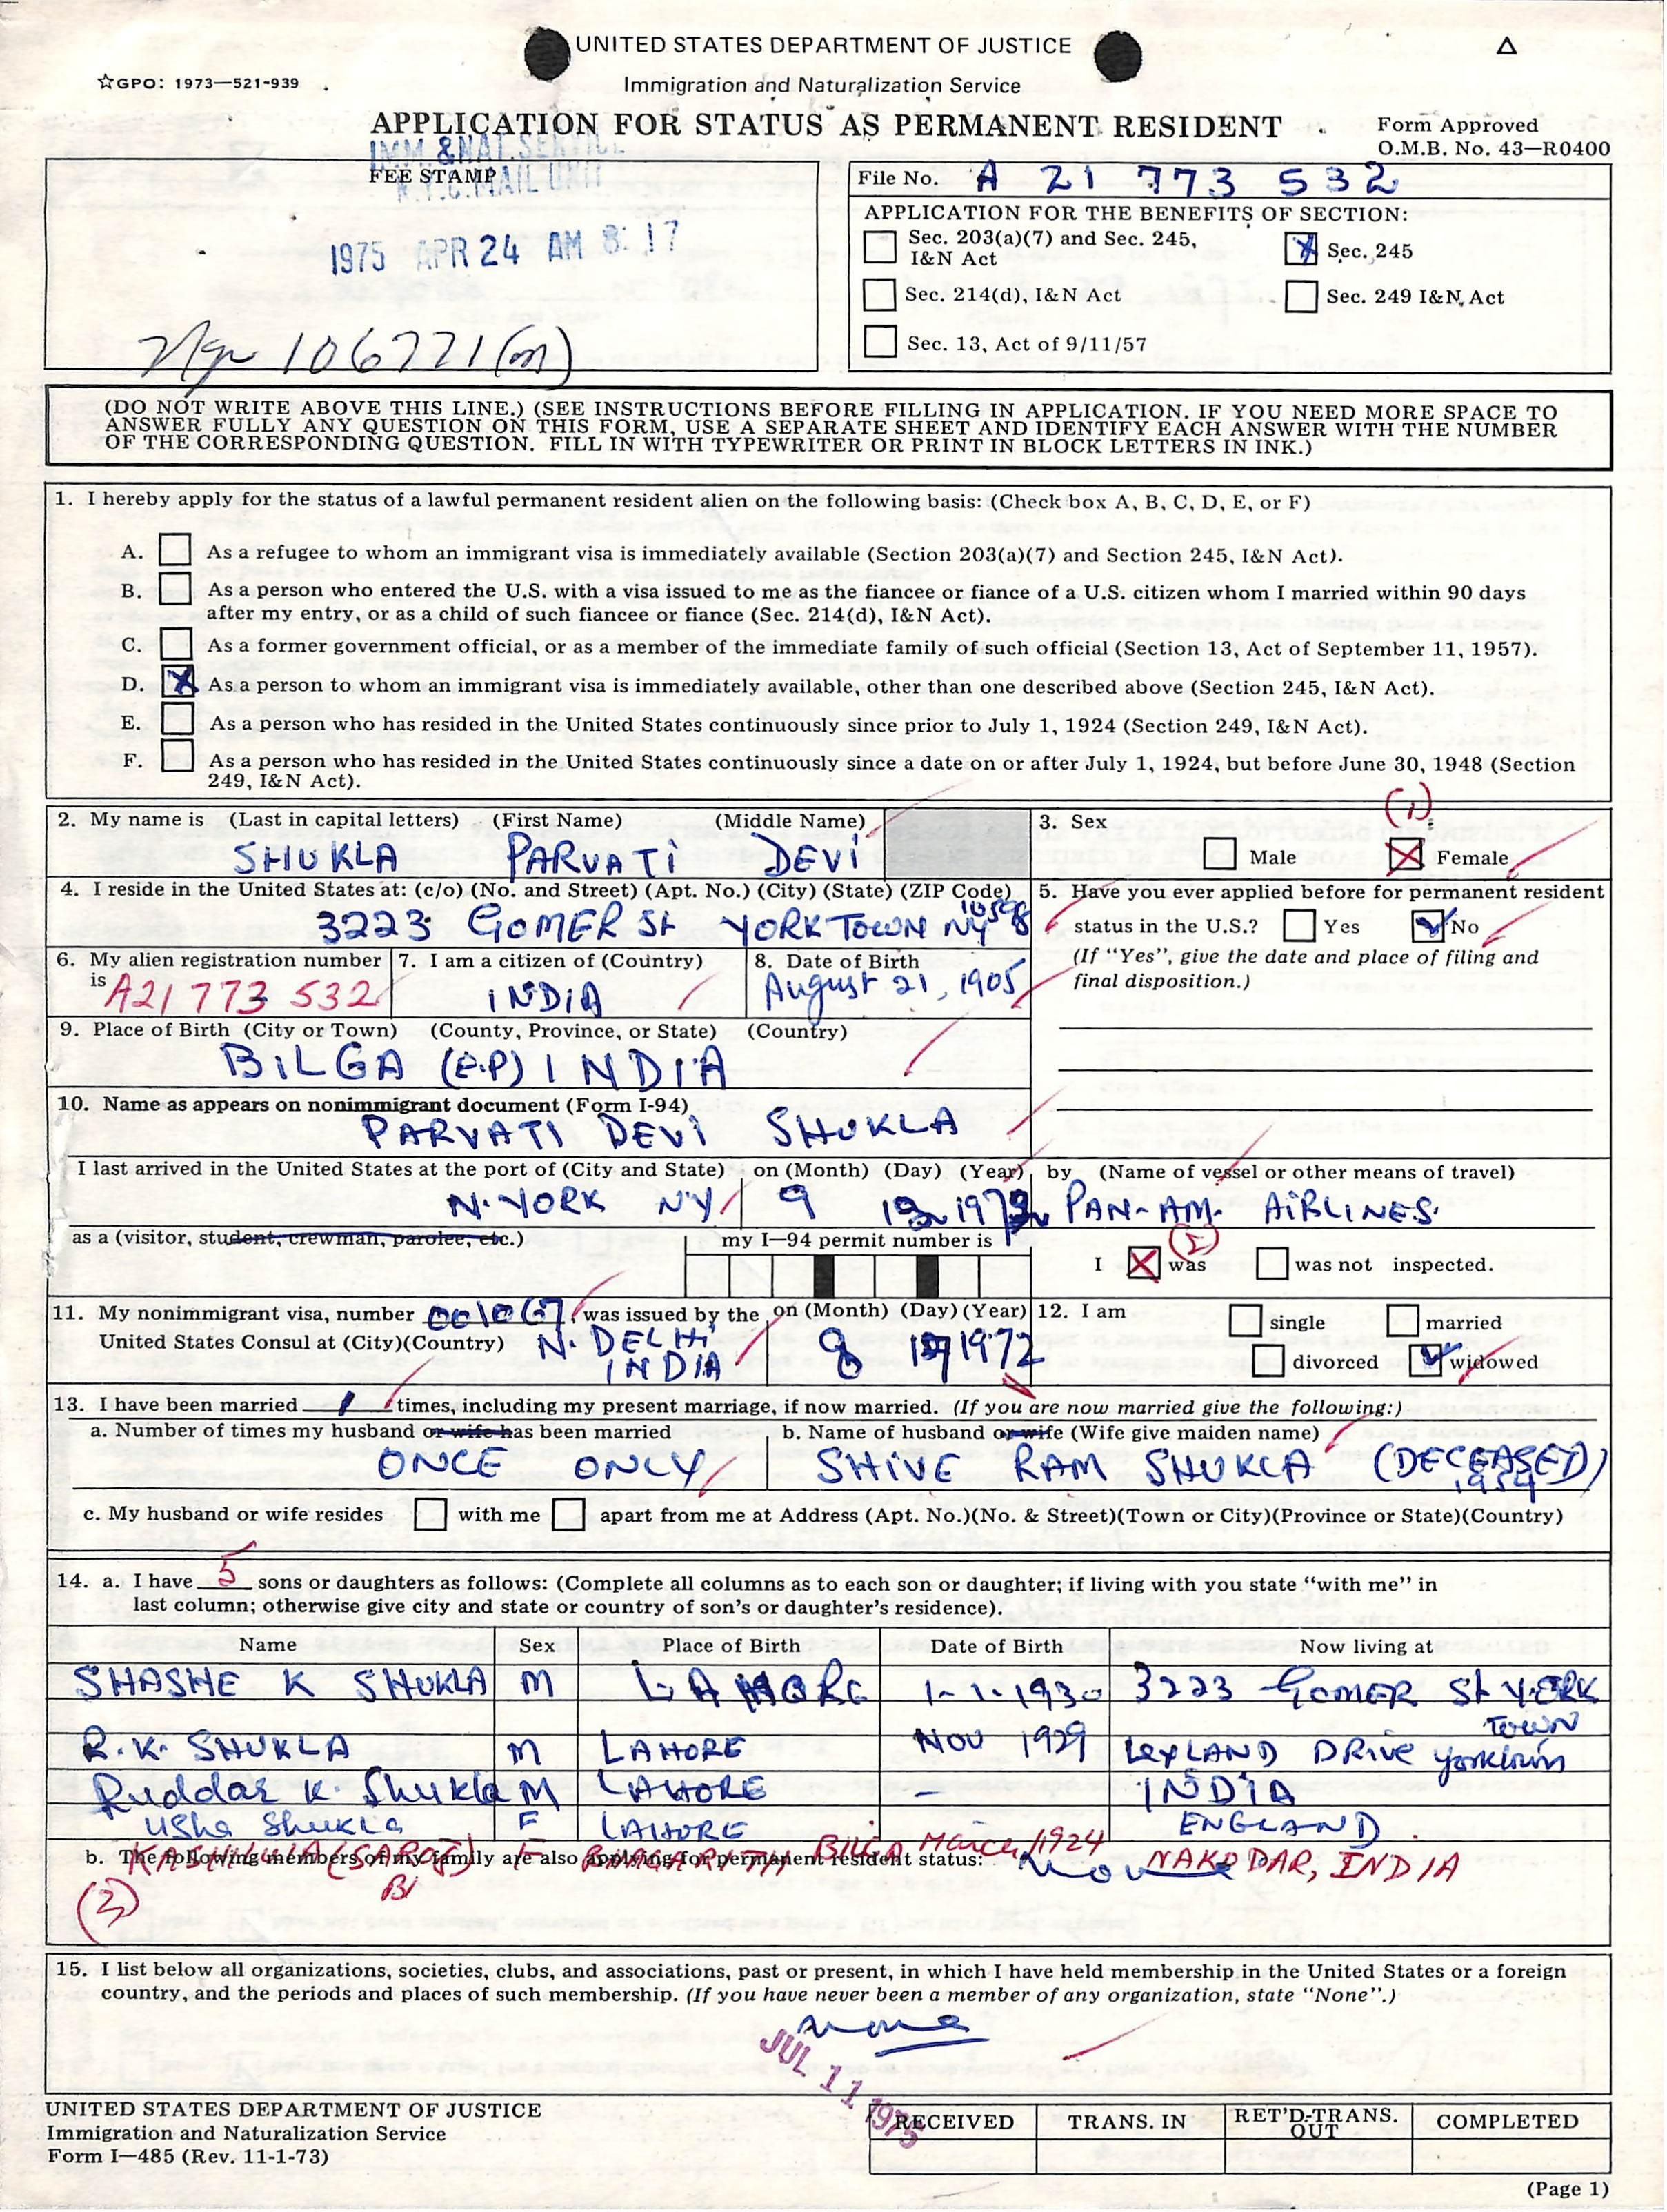 UNITED STATES DEPARTMENT OF JUSTICE
☆GPO: 1973—521-939
Immigration and Naturalization Service
APPLICATION FOR STATUS AS PERMANENT RESIDENT
Form Approved
O.M.B. No. 43—R0400
IMM. & NAT. SERVICE
FEE STAMP
N.Y.C. MAIL UNIT
1975 APR 24 AM 8:17
106721(m)
File No. A 21 773 532
APPLICATION FOR THE BENEFITS OF SECTION:
Sec. 203(a)(7) and Sec. 245, I&N Act
X Sec. 245
Sec. 214(d), I&N Act
Sec. 249 I&N Act
Sec. 13, Act of 9/11/57
(DO NOT WRITE ABOVE THIS LINE.) (SEE INSTRUCTIONS BEFORE FILLING IN APPLICATION. IF YOU NEED MORE SPACE TO
ANSWER FULLY ANY QUESTION ON THIS FORM, USE A SEPARATE SHEET AND IDENTIFY EACH ANSWER WITH THE NUMBER
OF THE CORRESPONDING QUESTION. FILL IN WITH TYPEWRITER OR PRINT IN BLOCK LETTERS IN INK.)
1. I hereby apply for the status of a lawful permanent resident alien on the following basis: (Check box A, B, C, D, E, or F)
A. As a refugee to whom an immigrant visa is immediately available (Section 203(a)(7) and Section 245, I&N Act).
B. As a person who entered the U.S. with a visa issued to me as the fiancee or fiance of a U.S. citizen whom I married within 90 days
after my entry, or as a child of such fiancee or fiance (Sec. 214(d), I&N Act).
C. As a former government official, or as a member of the immediate family of such official (Section 13, Act of September 11, 1957).
D. X As a person to whom an immigrant visa is immediately available, other than one described above (Section 245, I&N Act).
E. As a person who has resided in the United States continuously since prior to July 1, 1924 (Section 249, I&N Act).
F. As a person who has resided in the United States continuously since a date on or after July 1, 1924, but before June 30, 1948 (Section
249, I&N Act).
2. My name is (Last in capital letters) (First Name) (Middle Name)
SHUKLA PARVATI DEVI
3. Sex (1)
Male X Female
4. I reside in the United States at: (c/o) (No. and Street) (Apt. No.) (City) (State) (ZIP Code)
3223 GOMER St YORKTOWN NY 10598
5. Have you ever applied before for permanent resident
status in the U.S.? Yes No
(If "Yes", give the date and place of filing and
final disposition.)
6. My alien registration number
is A21 773 532
7. I am a citizen of (Country)
INDIA
8. Date of Birth
August 21, 1905
9. Place of Birth (City or Town) (County, Province, or State) (Country)
BILGA (E.P) INDIA
10. Name as appears on nonimmigrant document (Form I-94)
PARVATI DEVI SHUKLA
I last arrived in the United States at the port of (City and State) on (Month) (Day) (Year) by (Name of vessel or other means of travel)
N. YORK NY 9 PAN-AM. AIRLINES.
as a (visitor, student, crewman, parolee, etc.)
my I—94 permit number is
(2)
I X was was not inspected.
11. My nonimmigrant visa, number 001067 was issued by the
United States Consul at (City)(Country) N. DELHI
INDIA
on (Month) (Day) (Year)
8 1972
12. I am single married
divorced widowed
13. I have been married 1 times, including my present marriage, if now married. (If you are now married give the following:)
a. Number of times my husband or wife has been married
ONCE ONLY
b. Name of husband or wife (Wife give maiden name)
SHIVE RAM SHUKLA (DECEASED)
1954
c. My husband or wife resides with me apart from me at Address (Apt. No.)(No. & Street)(Town or City)(Province or State)(Country)
14. a. I have 5 sons or daughters as follows: (Complete all columns as to each son or daughter; if living with you state "with me" in
last column; otherwise give city and state or country of son's or daughter's residence).
Name Sex Place of Birth Date of Birth Now living at
SHASHE K SHUKLA M LAHORE 1-1-1930 3223 GOMER St YORK
TOWN
R.K. SHUKLA M LAHORE NOV 1929 LEYLAND DRIVE yorktown
Ruddar K. Shukla M LAHORE - INDIA
Usha Shukla F LAHORE ENGLAND
(SAROJ) F BILGA March 1924 NAKODAR, INDIA
b. The following members of my family are also applying for permanent resident status: None
(3)
15. I list below all organizations, societies, clubs, and associations, past or present, in which I have held membership in the United States or a foreign
country, and the periods and places of such membership. (If you have never been a member of any organization, state "None".)
none
JUL 11 1975
UNITED STATES DEPARTMENT OF JUSTICE
Immigration and Naturalization Service
Form I—485 (Rev. 11-1-73)
RECEIVED TRANS. IN RET'D-TRANS. OUT COMPLETED
(Page 1)